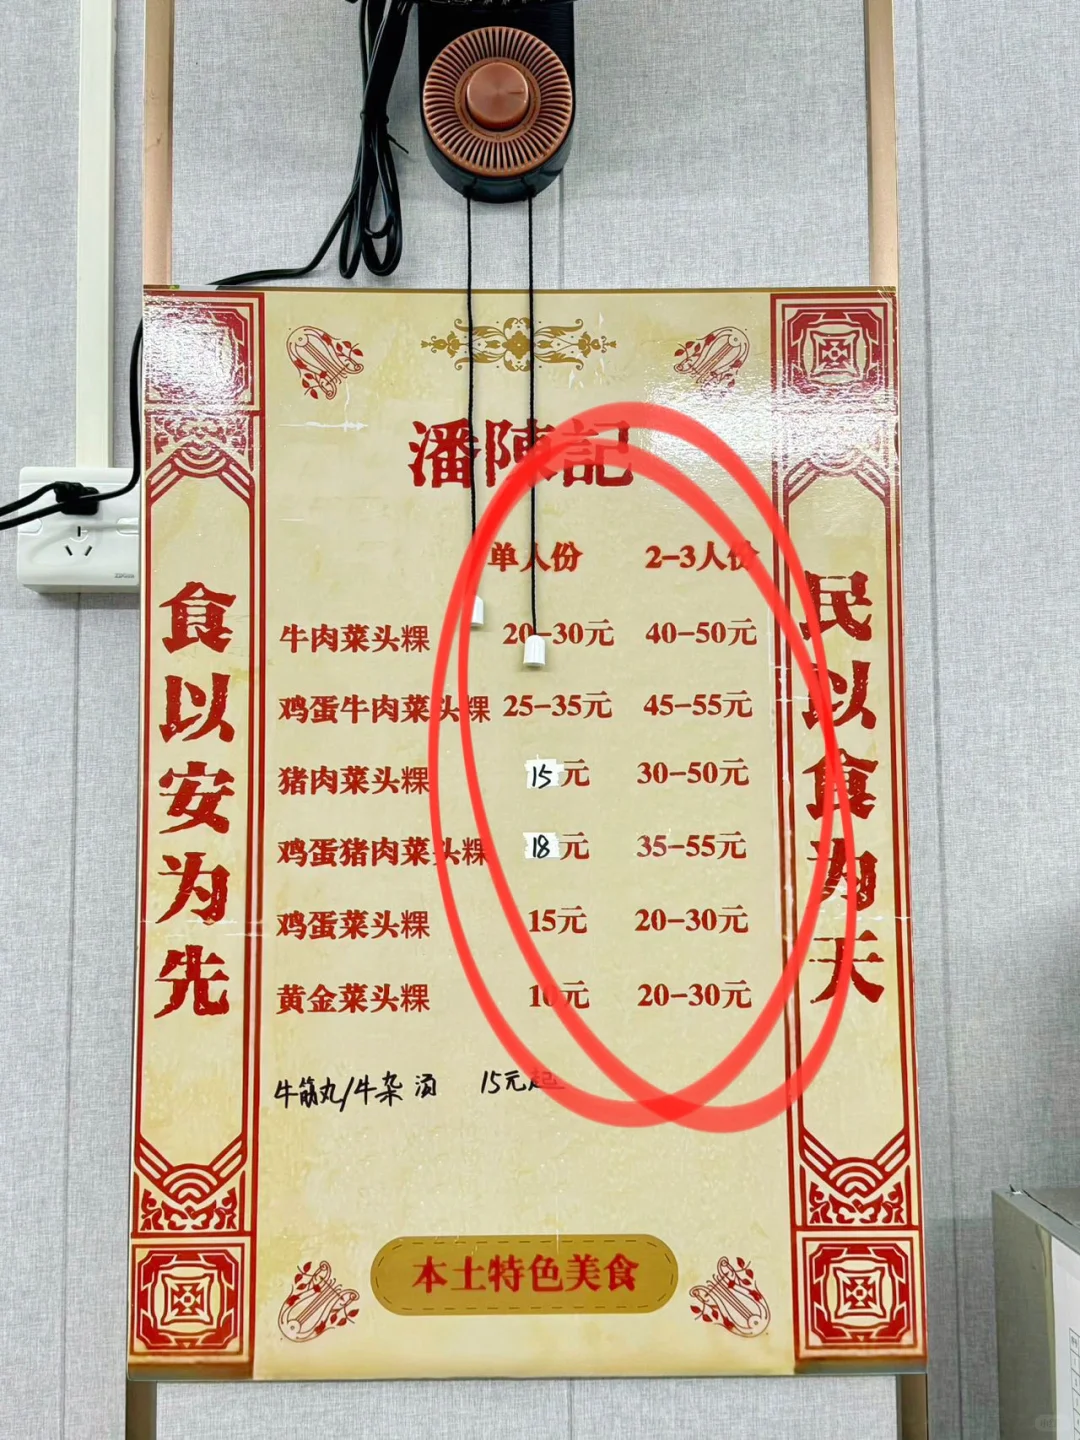 潘陳記
单人份 2-3人份
牛肉菜头粿 20-30元 40-50元
鸡蛋牛肉菜头粿 25-35元 45-55元
猪肉菜头粿 15元 30-50元
鸡蛋猪肉菜头粿 18元 35-55元
鸡蛋菜头粿 15元 20-30元
黄金菜头粿 10元 20-30元
牛筋丸/牛杂汤 15元起
本土特色美食
食以安为先
民以食为天